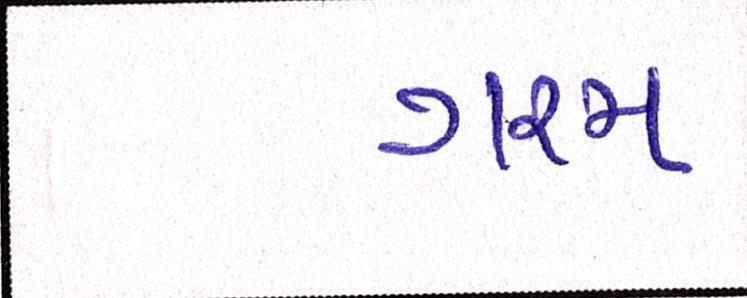 ગરમ